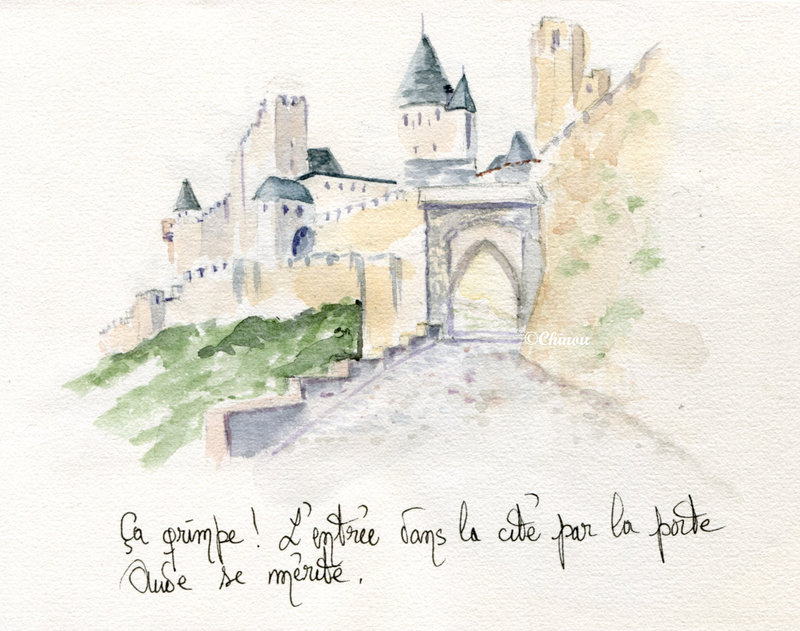 ©Chinou
Ça grimpe ! L'entrée dans la cité par la porte
Aude se mérite.